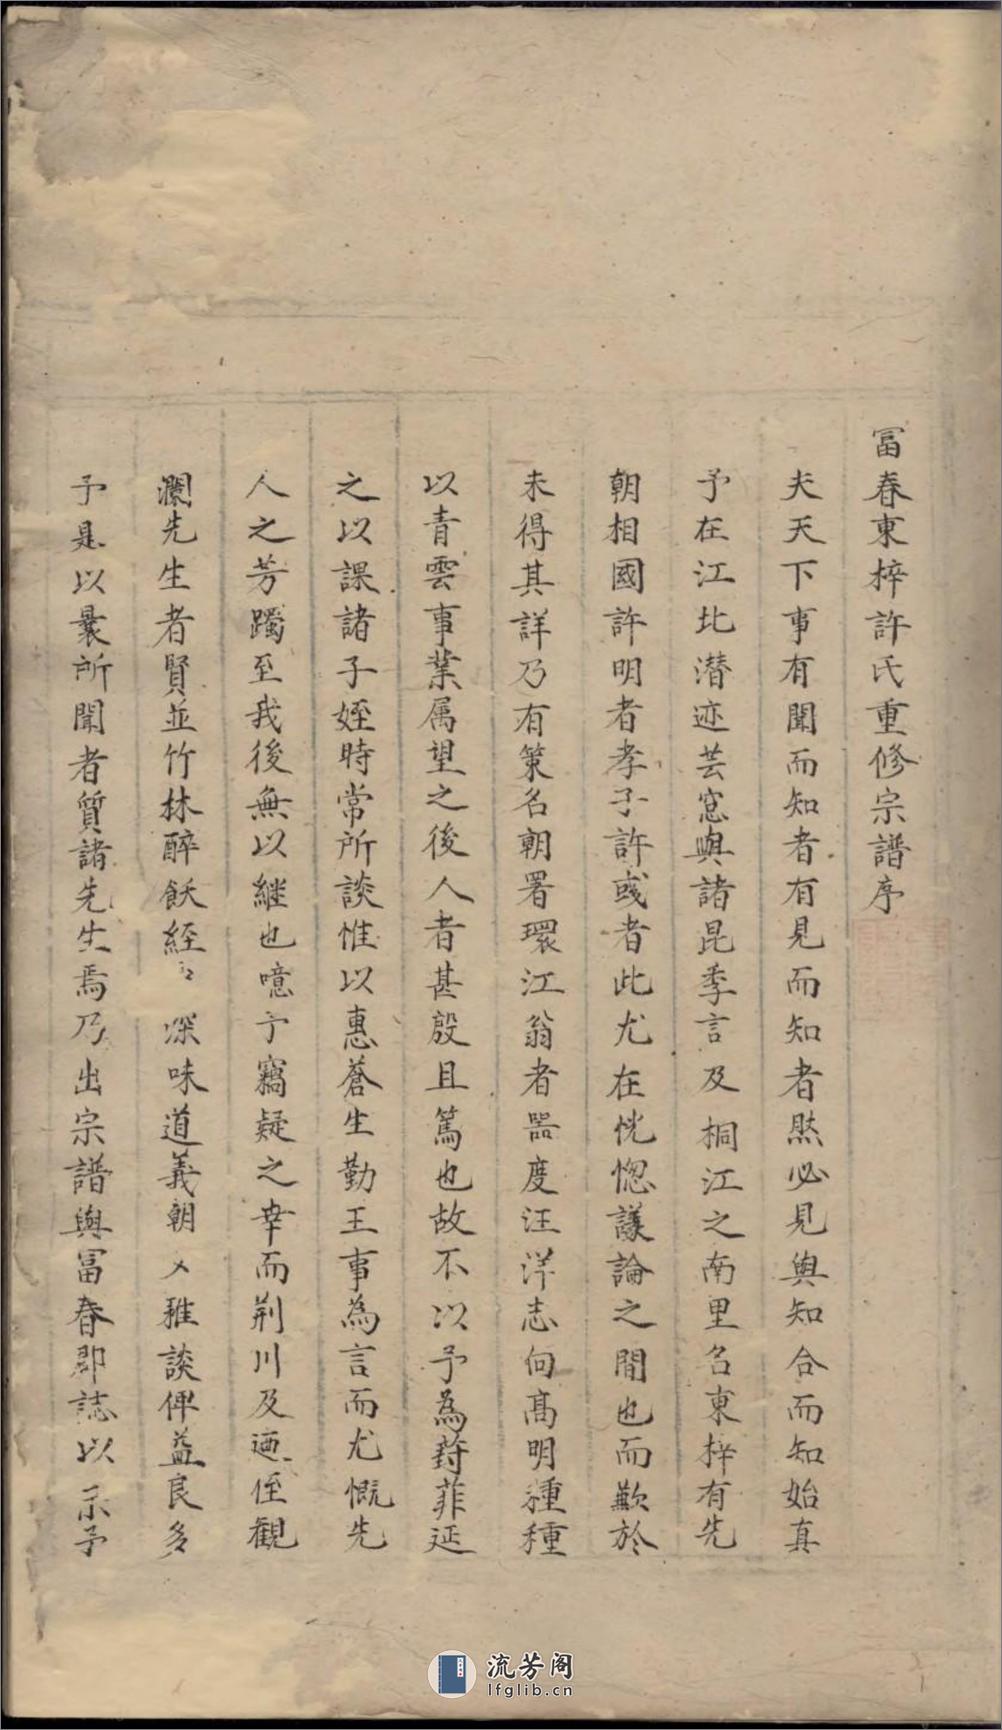 冨春東梓許氏重修宗譜序
夫天下事有聞而知者有見而知者然必見與知合而知始真
予在江北潜迹芸窓與諸昆季言及桐江之南里名東梓有先
朝相國許明者孝子許彧者此尤在恍惚議論之間也而歉於
未得其詳乃有策名朝署環江翁者噐度汪洋志向髙明種種
以青雲事業属望之後人者甚殷且篤也故不以予為葑菲延
之以課諸子姪時常所談惟以惠蒼生勤王事為言而尤慨先
人之芳躅至我後無以継也噫予竊疑之幸而荆川及迺侄觀
瀾先生者賢並竹林醉飫経深味道義朝夕雅談俾益良多
予是以曩所聞者質諸先生焉乃出宗譜與冨春郡誌以示予
流芳阁
lfglib.cn